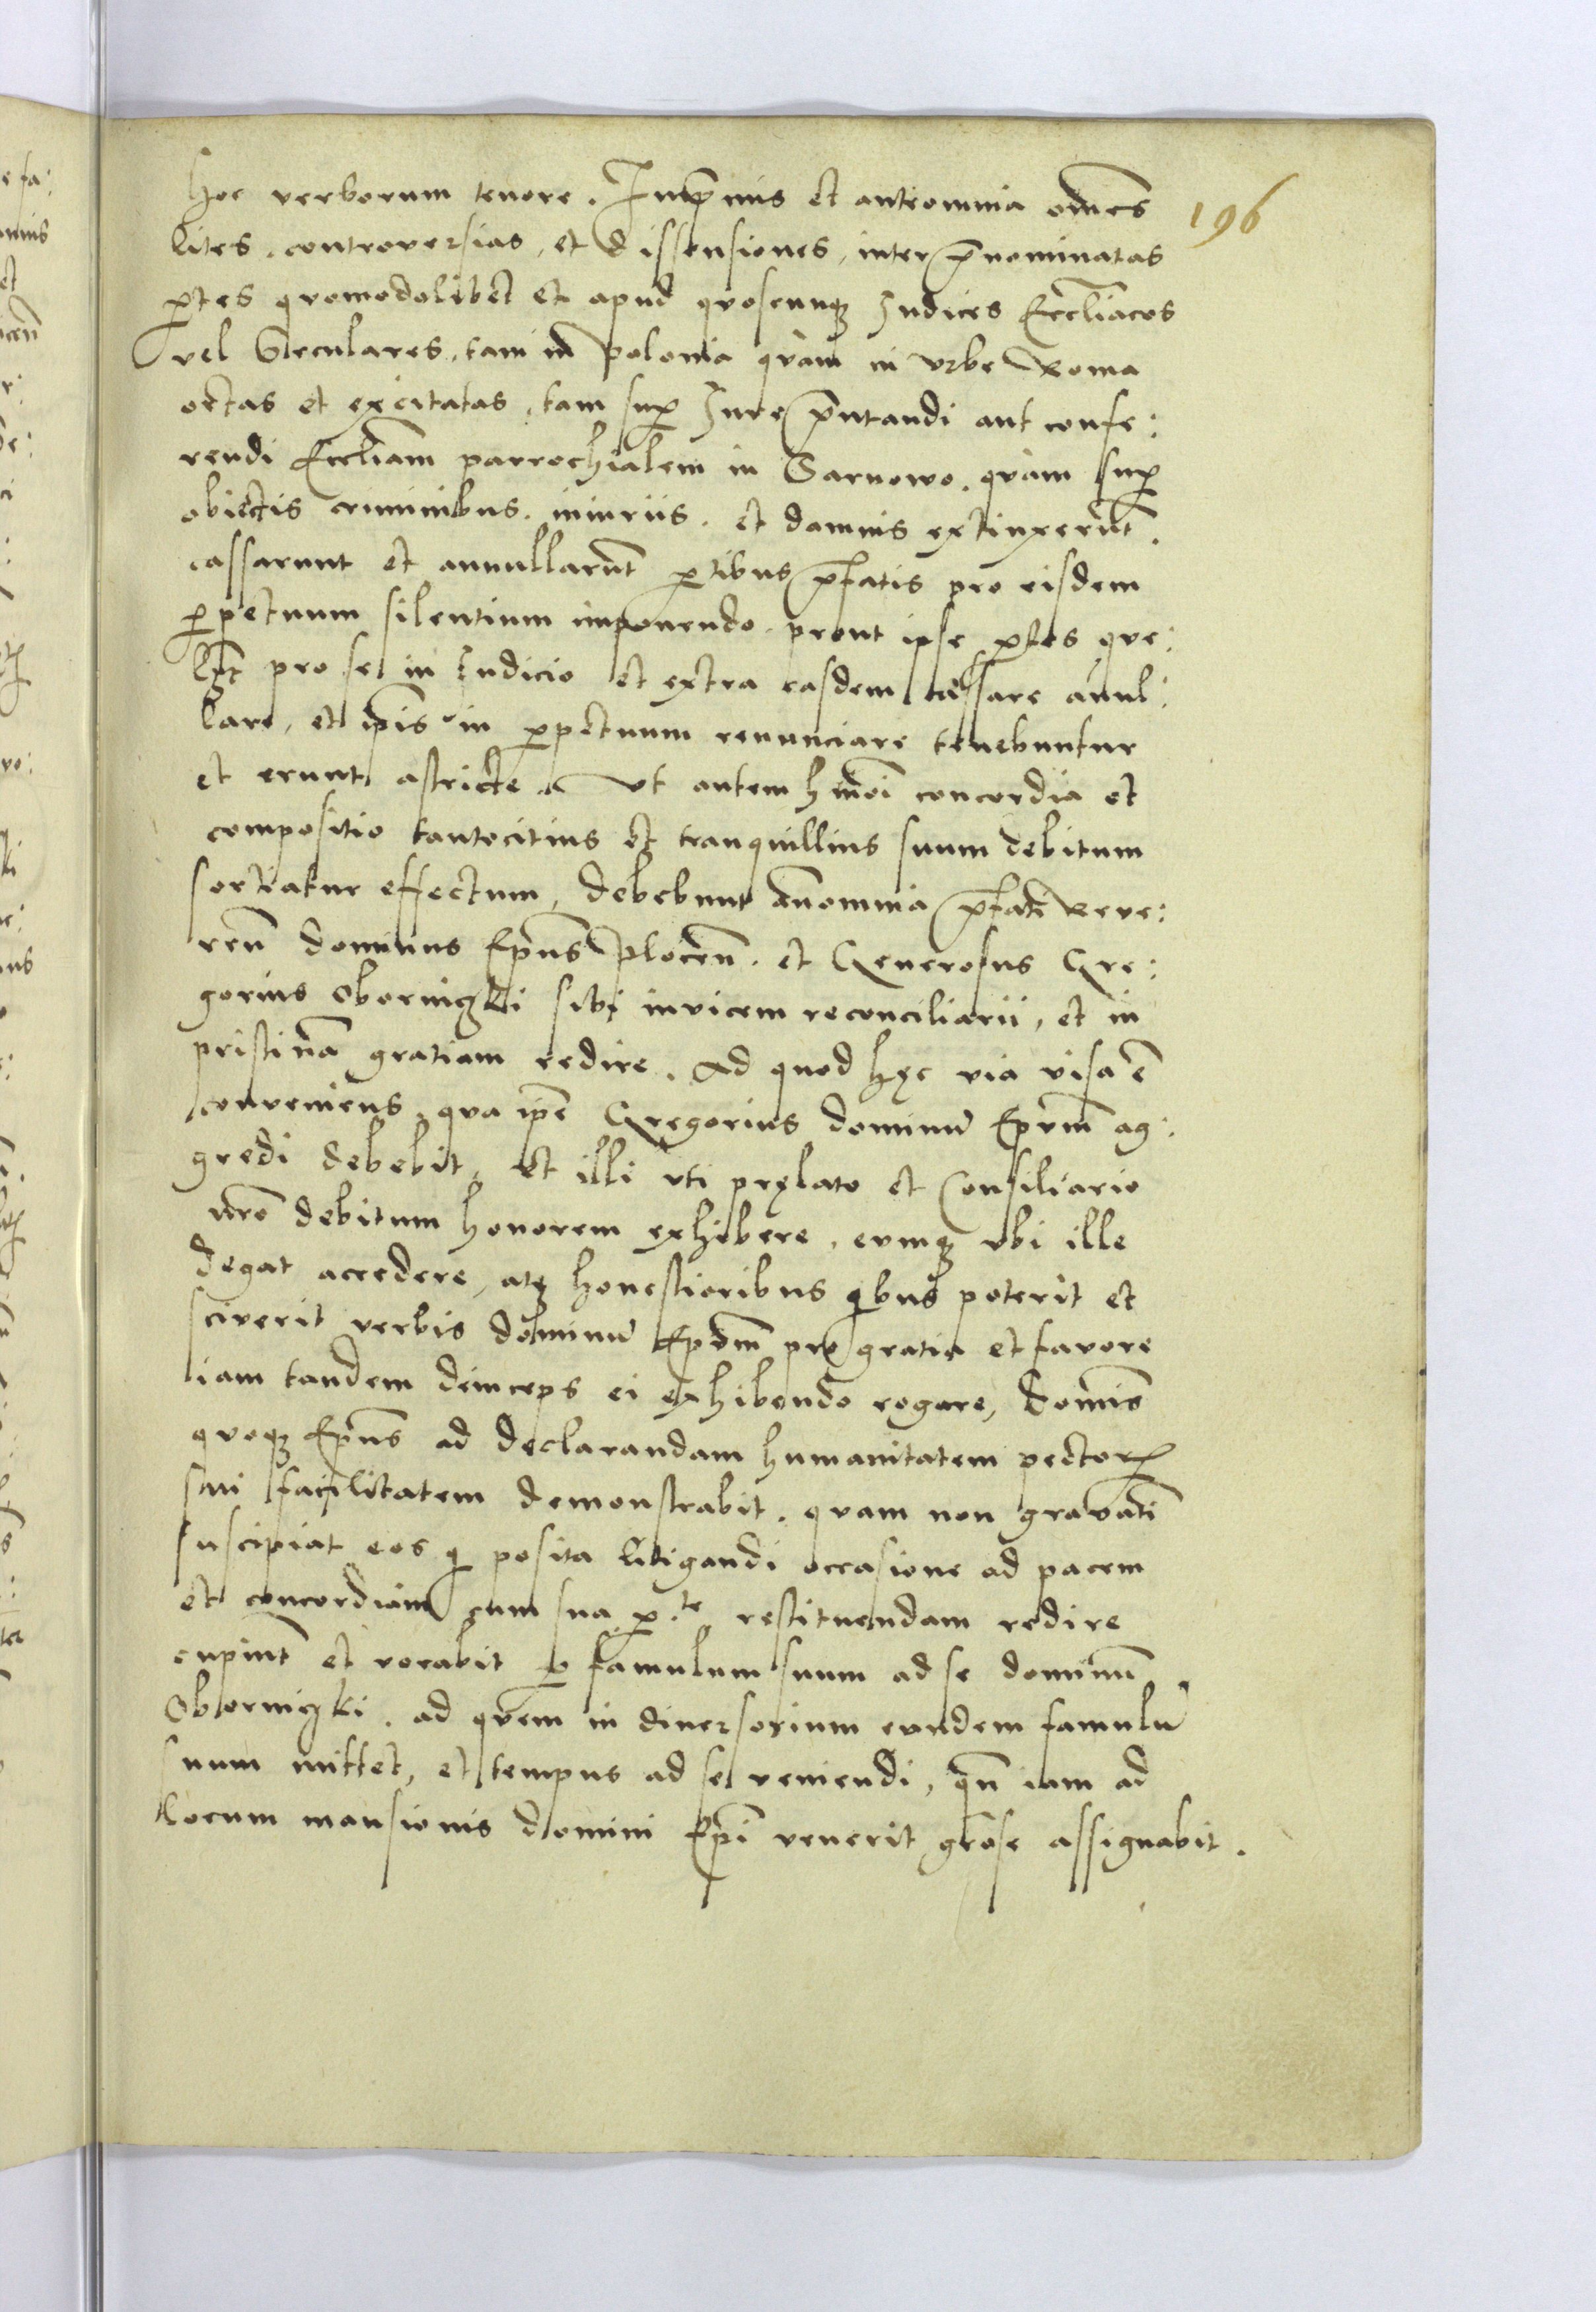 hoc verborum tenore. Inp̄mis et anteomnia om̄es
196
lites, controversias, et dissensiones, inter p̄nominatas
ꝑtes qvomodolibet et apud qvoscunqꝫ Iudices Eccl̄iacos
vel Seculares, tam in polonia qvam in vrbe Roma
ortas et excitatas, tam suꝑ Iure p̄ntandi aut confe:
rendi Eccl̄iam parrochialem in Sarnowo. qvam suꝑ
obiectis criminibus. iniuriis. et damnis extinxerūt.
cassarunt et annullarūt ꝑtibus p̄fatis pro eisdem
ꝑpetuum silentium imponendo. prout ipse ꝑtes qve:
lꝫt pro se in Iudicio et extra easdem cassare anul:
lare, et ip̄is in ꝑpetuum renunciare tenebuntur
et erunt astricte. Vt autem hmōi concordia et
compositio tantocitius et tranquillius suum debitum
sortiatur effectum, debebunt an̄omnia p̄fati Reve:
ren̄ dominus Ep̄us Plocen̄. et Generosus Gre:
gorius Oborniczki sibi invicem reconciliarii, et in
pristinā gratiam redire. Ad quod hęc via visa ē
conveniens, qva ip̄e Gregorius dominū Ep̄vm ag:
gredi debebit, et illi vti pręlato et Consiliario
n̄ro debitum honorem exhibere, evmqꝫ vbi ille
degat accedere, atqꝫ honestioribus qi̇bus poterit et
sciverit verbis dominū Ep̄vm pro gratia et favore
iam tandem deinceps ei exhibendo rogare, Domīs
qvoqꝫ Ep̄us ad declarandam humanitatem pectorꝭ
sui facilitatem demonstrabit. qvam non gravatī
suscipiat eos qi̇ posita litigandi occasione ad pacem
et concordiam cum sua ꝑte restituendam redire
cupiūt et vocabit ꝑ famulum suum ad se dominū
Oborniczki. ad qvem in diversorium eundem famulū
suum mittet, et tempus ad se veniendi, qn̄ iam ad
locum mansionis domini Ep̄i venerit gr̄ose assignabit.